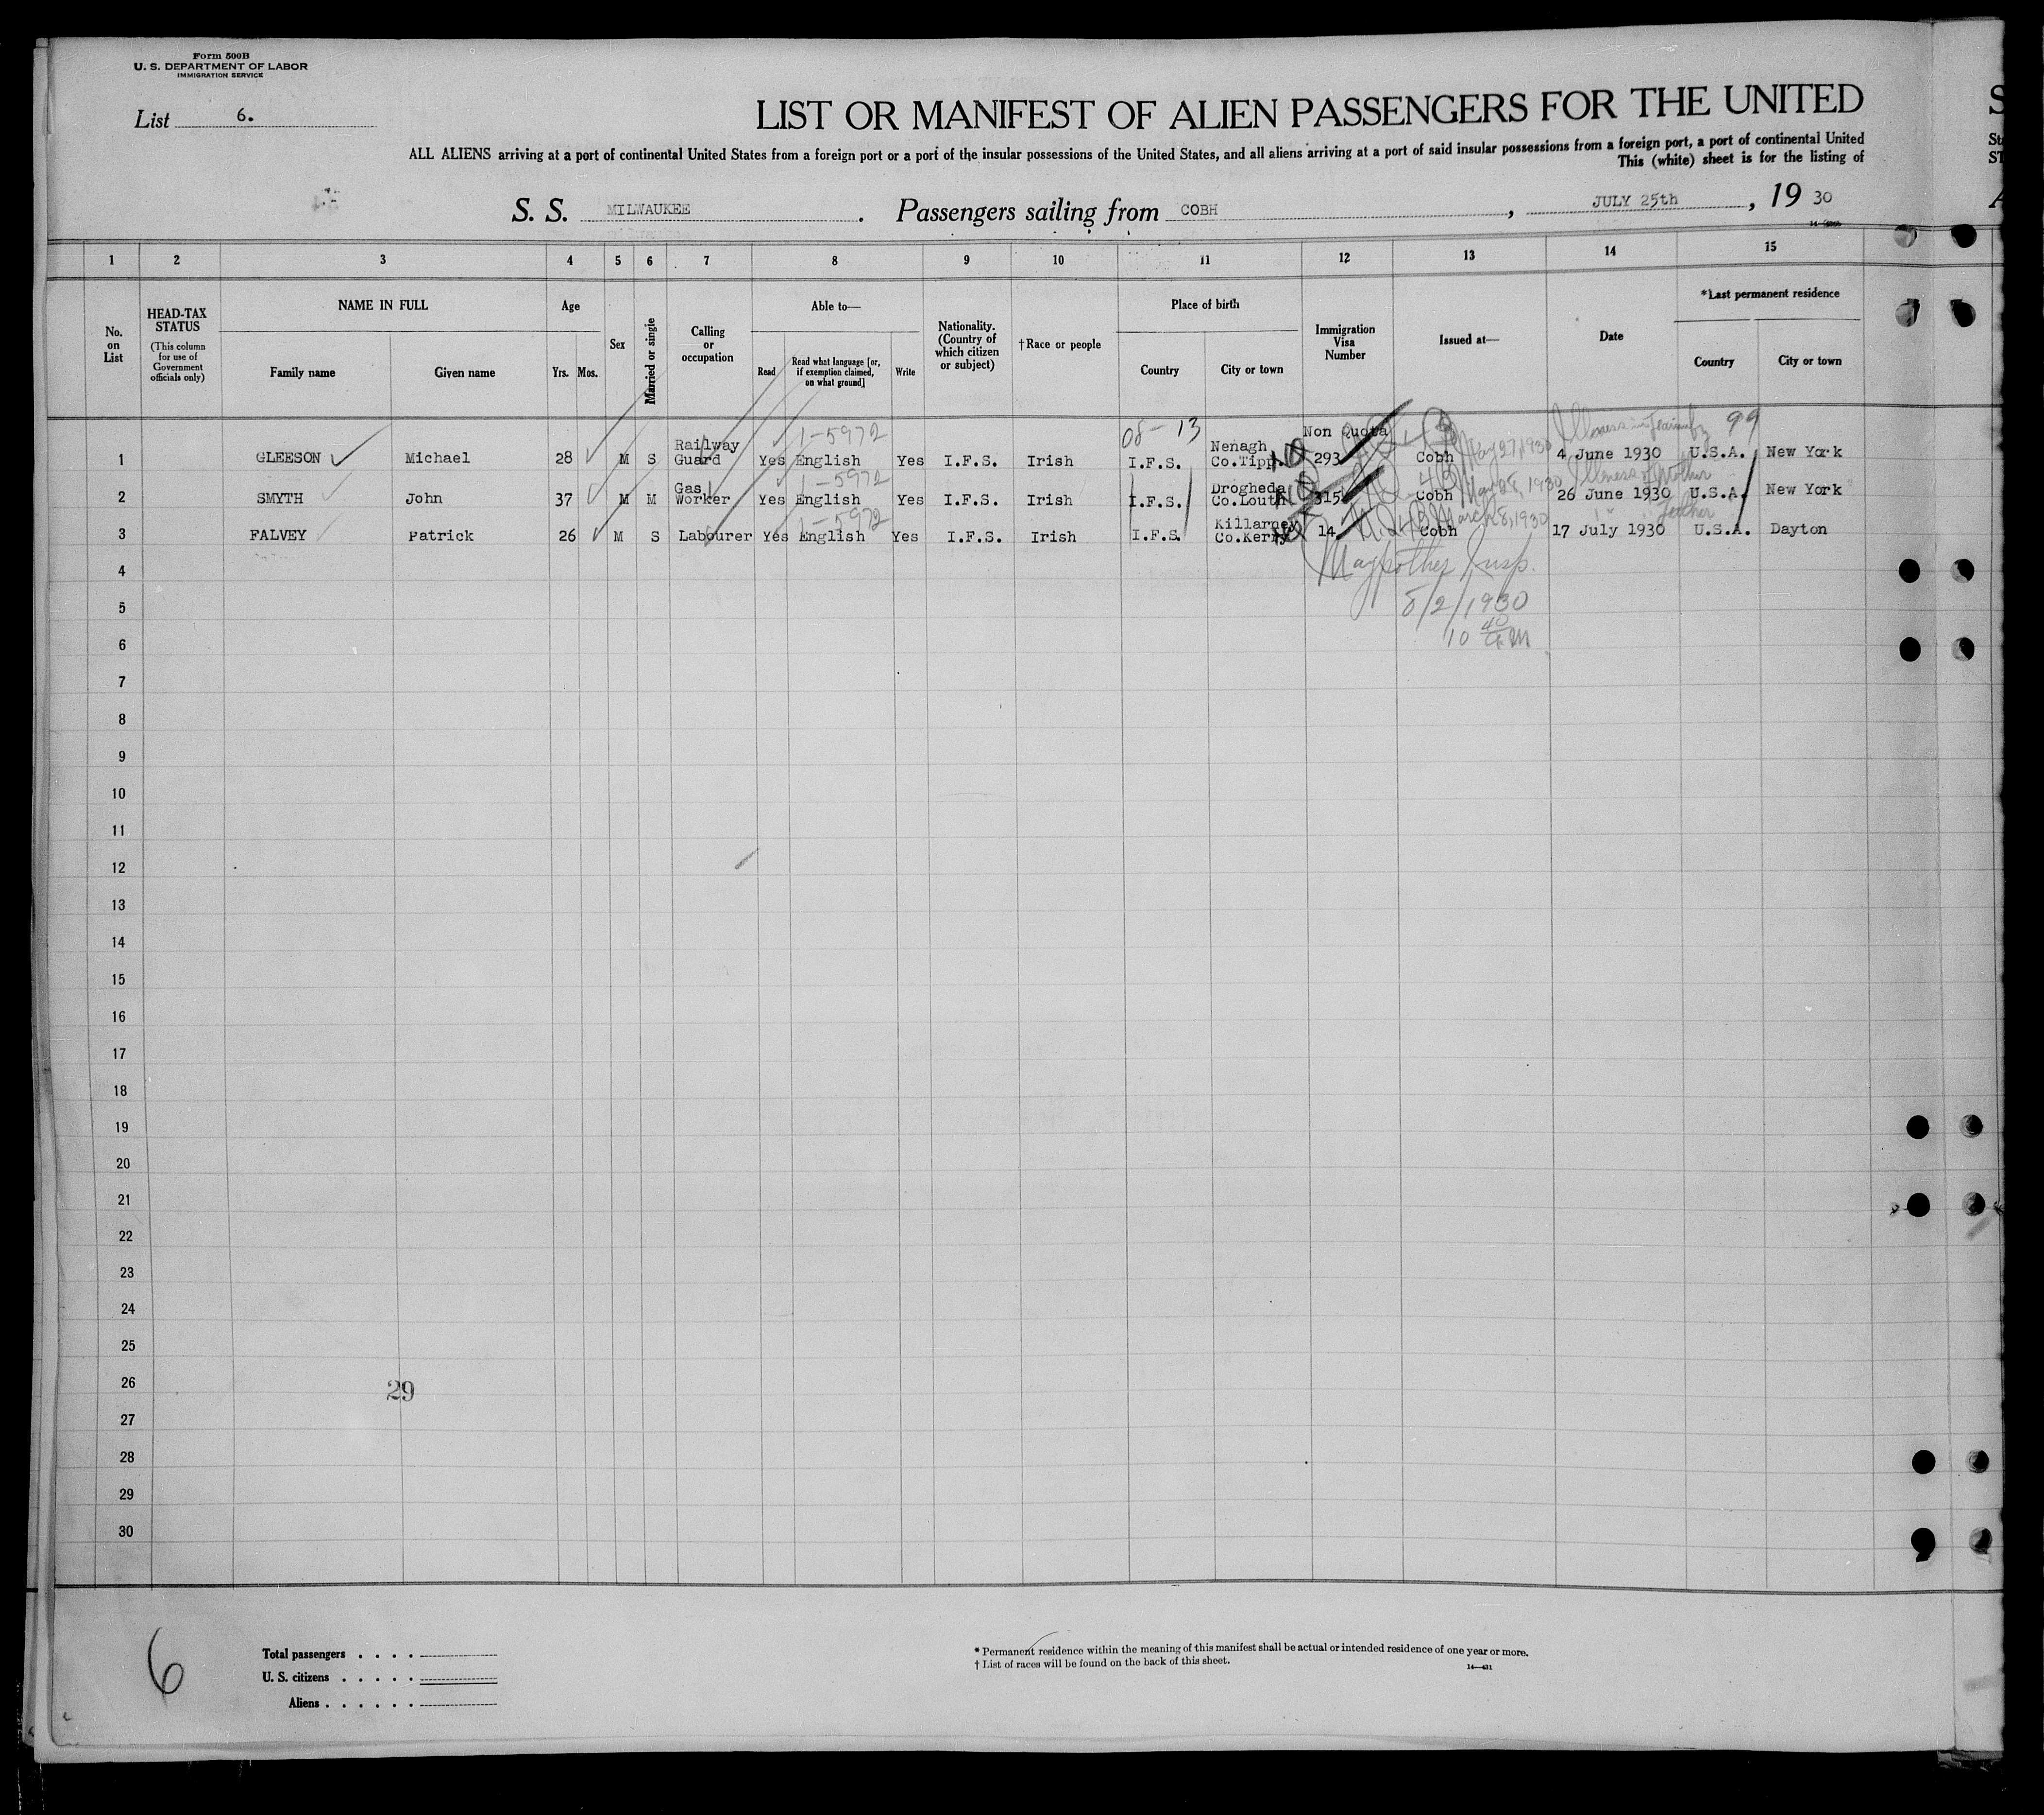 Form 500B
U. S. DEPARTMENT OF LABOR
IMMIGRATION SERVICE
List 6.
LIST OR MANIFEST OF ALIEN PASSENGERS FOR THE UNITED
ALL ALIENS arriving at a port of continental United States from a foreign port or a port of the insular possessions of the United States, and all aliens arriving at a port of said insular possessions from a foreign port, a port of continental United
This (white) sheet is for the listing of
S. S. MILWAUKEE . Passengers sailing from COBH , JULY 25th , 19 30
1 2 3 4 5 6 7 8 9 10 11 12 13 14 15
No. on List
HEAD-TAX STATUS
(This column for use of Government officials only)
NAME IN FULL
Family name Given name
Age
Yrs. Mos.
Sex
Married or single
Calling or occupation
Able to—
Read
Read what language [or, if exemption claimed, on what ground]
Write
Nationality. (Country of which citizen or subject)
†Race or people
Place of birth
Country City or town
Immigration Visa Number
Issued at—
Date
*Last permanent residence
Country City or town
1-5972 08-13 Non Quota 99
1 GLEESON Michael 28 M S Railway Guard Yes English Yes I.F.S. Irish I.F.S. Nenagh Co.Tipp. 293 Cobh May 27, 1930 4 June 1930 U.S.A. New York
1-5972 Illness of Mother
2 SMYTH John 37 M M Gas Worker Yes English Yes I.F.S. Irish I.F.S. Drogheda Co.Louth 315 Cobh May 28, 1930 26 June 1930 U.S.A. New York
1-5972 " " father
3 FALVEY Patrick 26 M S Labourer Yes English Yes I.F.S. Irish I.F.S. Killarney Co.Kerry 14 Cobh March 8, 1930 17 July 1930 U.S.A. Dayton
4
Insp.
5
8/2/1930
6
10 40 AM
7
8
9
10
11
12
13
14
15
16
17
18
19
20
21
22
23
24
25
26
29
27
28
29
30
6
Total passengers . . . .
U. S. citizens . . . . .
Aliens . . . . . .
* Permanent residence within the meaning of this manifest shall be actual or intended residence of one year or more.
† List of races will be found on the back of this sheet.
14—431